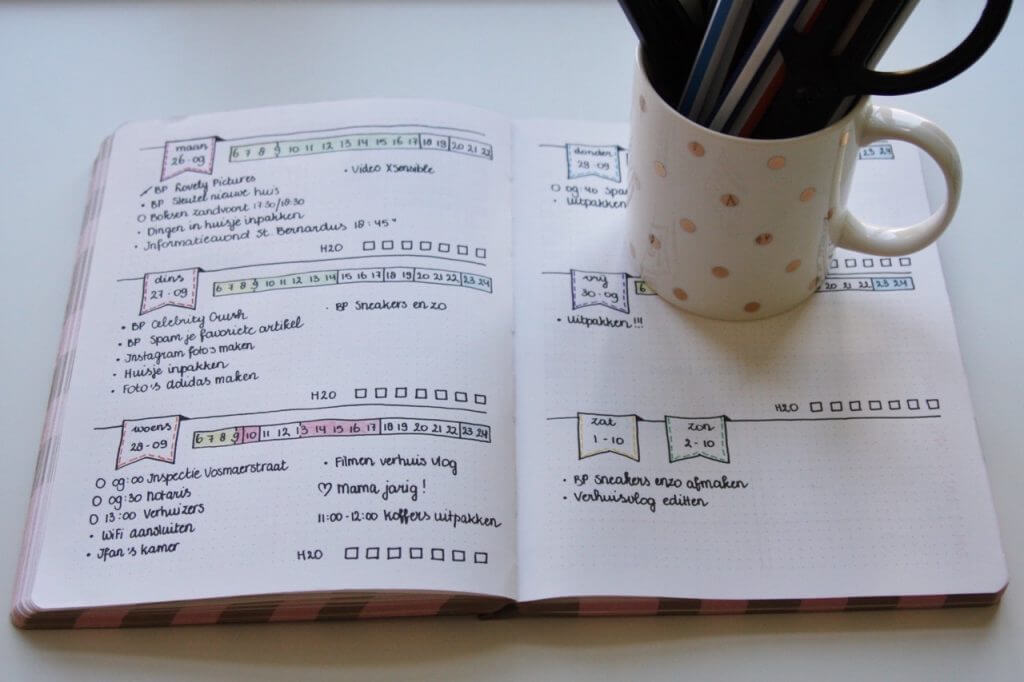 maan
26-09
6 7 8 9 10 11 12 13 14 15 16 17 18 19 20 21 22
BP Lovely Pictures
• BP Sleutel nieuwe huis
O Boksen Zandvoort 17:30/18:30
• Dingen in huisje inpakken
• Informatieavond St. Bernardus 18:45"
• Video XSensible
H2O
dins
27-09
6 7 8 9 10 11 12 13 14 15 16 17 18 19 20 21 22 23 24
• BP Celebrity Crush
• BP Spam je favoriete artikel
• Instagram foto's maken
• Huisje inpakken
• Foto's adidas maken
• BP Sneakers en zo
H2O
woens
28-09
6 7 8 9 10 11 12 13 14 15 16 17 18 19 20 21 22 23 24
O 09:00 Inspectie Vosmaerstraat
O 09:30 Notaris
O 13:00 Verhuizers
• WiFi aansluiten
• Jfan's kamer
• Filmen verhuis vlog
♡ Mama jarig!
11:00-12:00 Koffers uitpakken
H2O
donder
29-09
23 24
O 09:40
• Uitpakken
vrij
30-09
6
20 21 22 23 24
• Uitpakken!!!
H2O
zat
1-10
zon
2-10
• BP Sneakers enzo afmaken
• Verhuisvlog editten